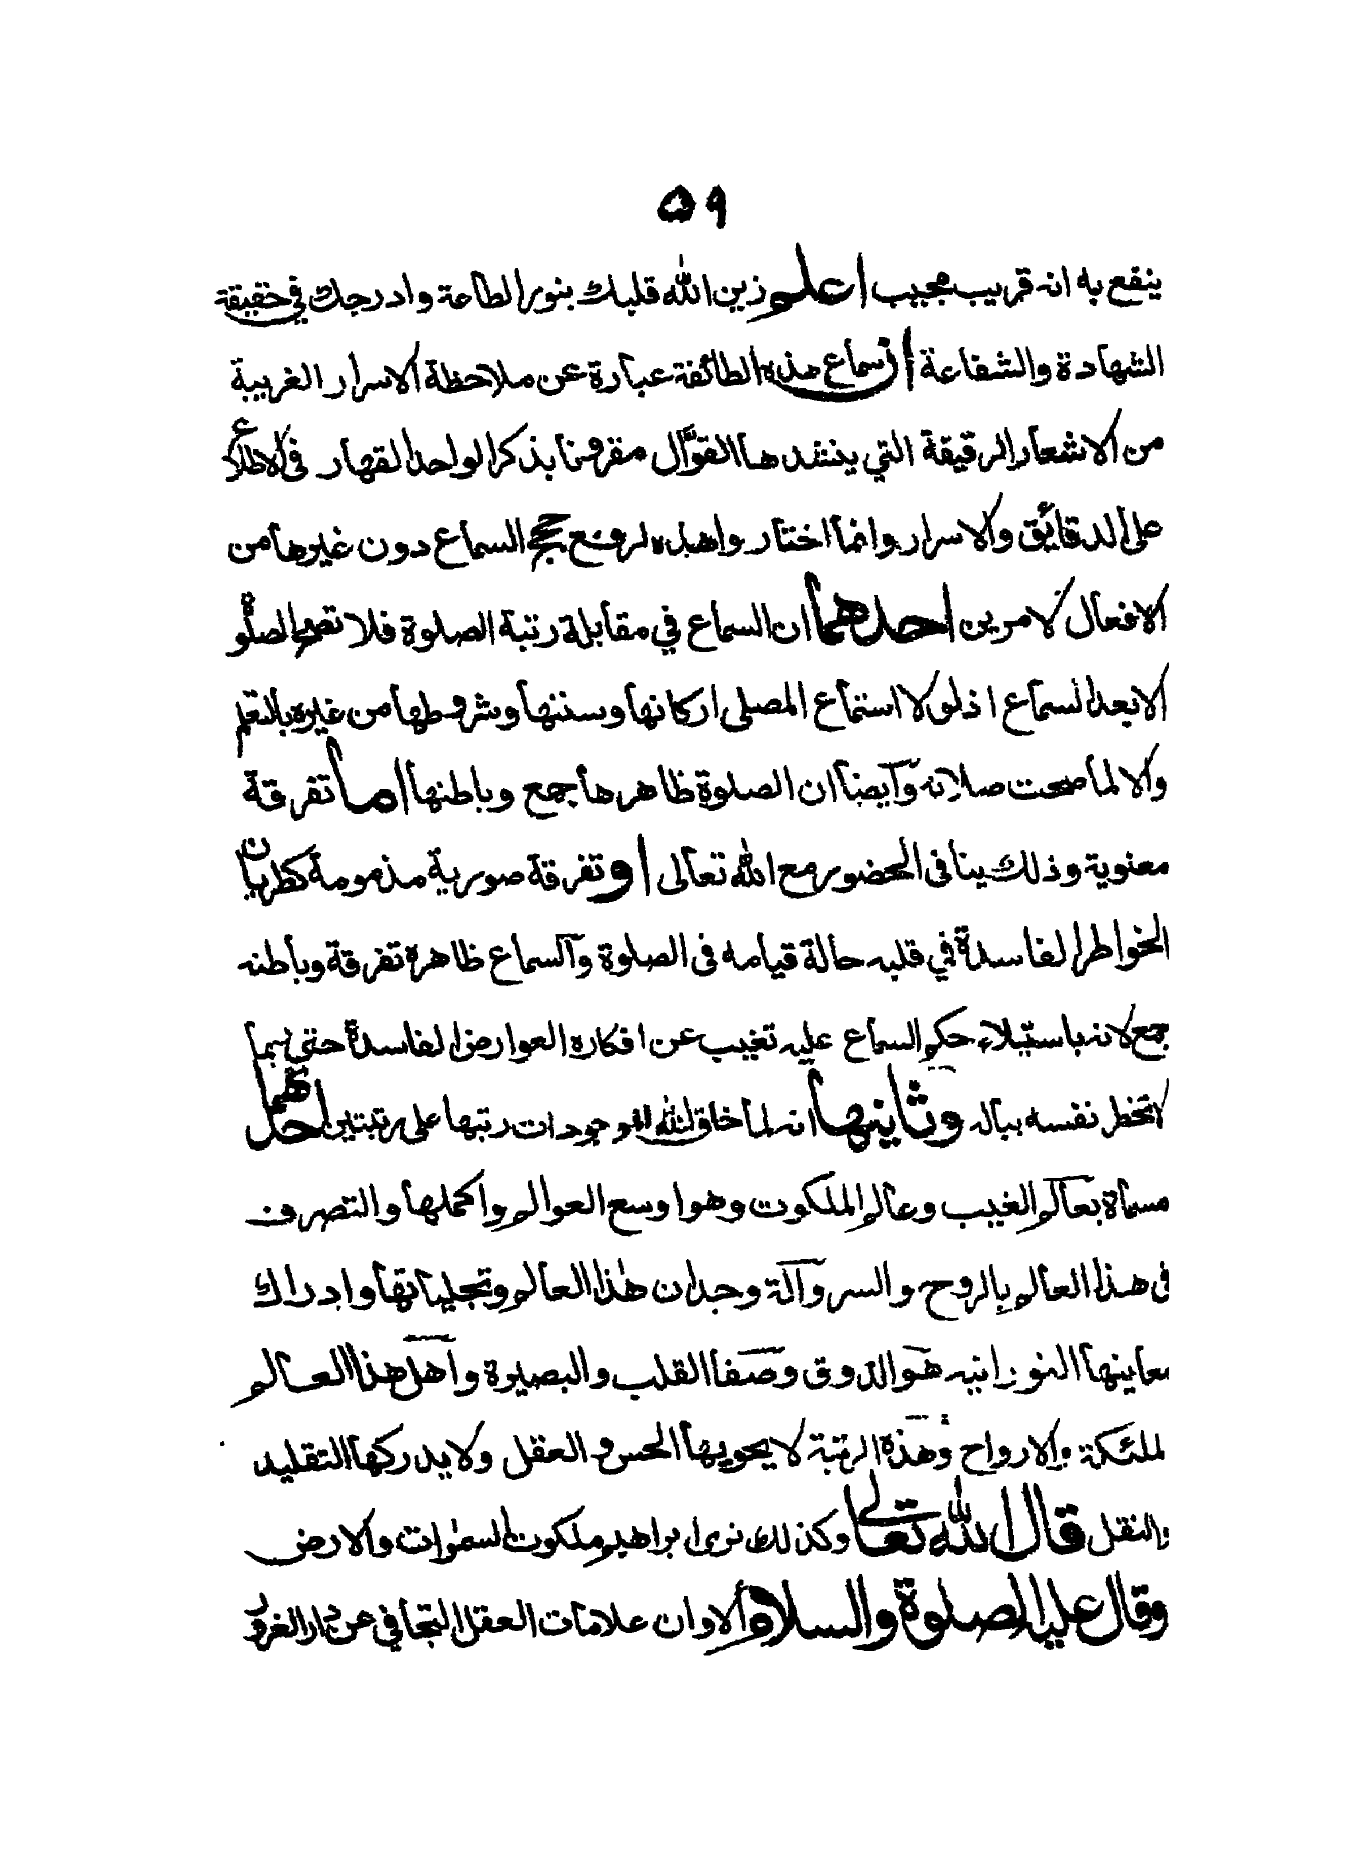 ٥٩
ينفع به انه قريب مجيب اعلم زين الله قلبك بنور الطاعة وادرجك في حقيقة
الشهادة والشفاعة ان سماع هذه الطائفة عبارة عن ملاحظة الاسرار الغريبة
من الاشعار الرقيقة التي ينشدها القوّال مقرونا بذكر الواحد القهار في الاطلاع
على الدقائق والاسرار وانما اختار واهذه لرفع حجج السماع دون غيرها من
الافعال لامرين احدهما ان السماع في مقابلة رتبة الصلوة فلا تصح الصلوة
الا بعد السماع اذ لولا استماع المصلى اركانها وسننها وشروطها من غيره بالتعلم
والا لما صحت صلاته وآيضا ان الصلوة ظاهرها جمع وباطنها اما تفرقة
معنوية وذلك ينافى الحضور مع الله تعالى او تفرقة صورية مذمومة كطريان
الخواطر الفاسدة في قلبه حالة قيامه فى الصلوة وآلسماع ظاهره تفرقة وباطنه
جمع لانه باستيلاء حكم السماع عليه تغيب عن افكاره العوارض الفاسدة حتى ربما
لا تخطر نفسه بباله وثانيها انه لما خلق الله الموجودات رتبها على رتبتين احدهما
مسماة بعالم الغيب وعالم الملكوت وهو اوسع العوالم واكملها والتصرف
فى هذا العالم بالروح والسر وآلة وجدان هٰذا العالم وتجلياتها وادراك
معاينها النورانيه هو الذوق وصفا القلب والبصيرة واهل هذا العالم
الملئكة والارواح وهذه الرتبة لا يحويها الحس والعقل ولا يدركها التقليد
والنقل قال الله تعالى وكذلك نرى ابراهيم ملكوت السمٰوات والارض
وقال عليه الصلوة والسلام ألا وان علامات العقل التجافي عن دار الغرور